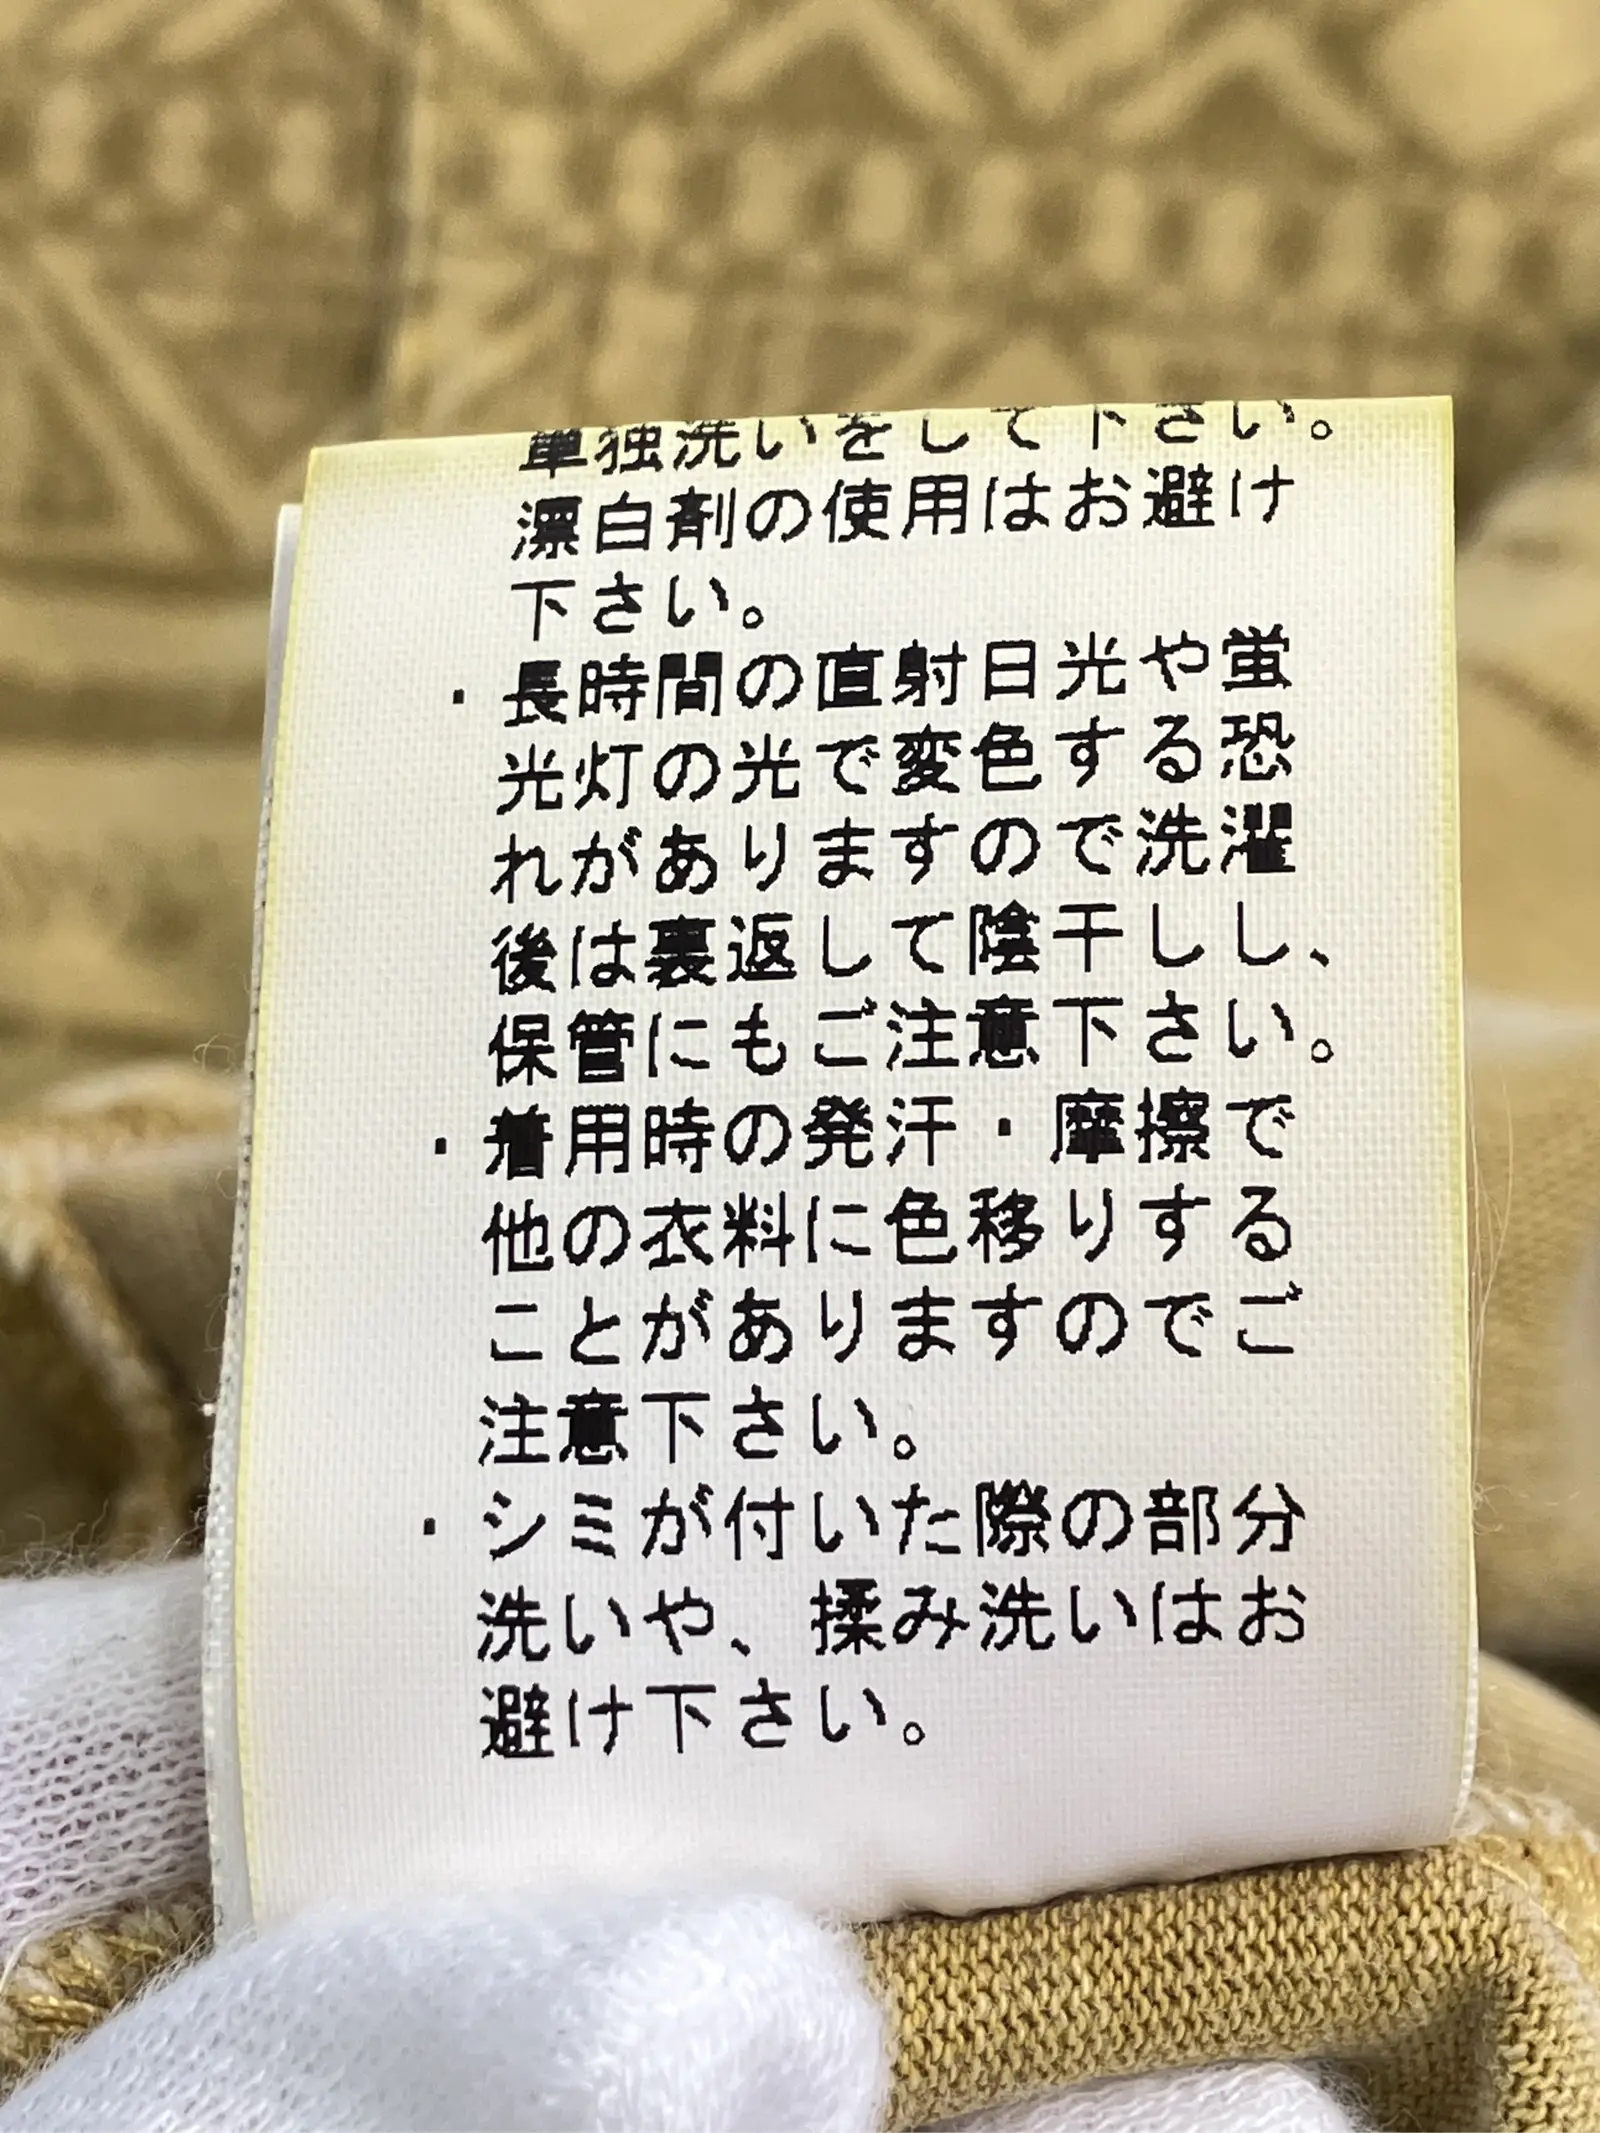 単独洗いをして下さい。
漂白剤の使用はお避け
下さい。
・長時間の直射日光や蛍
光灯の光で変色する恐
れがありますので洗濯
後は裏返して陰干しし、
保管にもご注意下さい。
・着用時の発汗・摩擦で
他の衣料に色移りする
ことがありますのでご
注意下さい。
・シミが付いた際の部分
洗いや、揉み洗いはお
避け下さい。